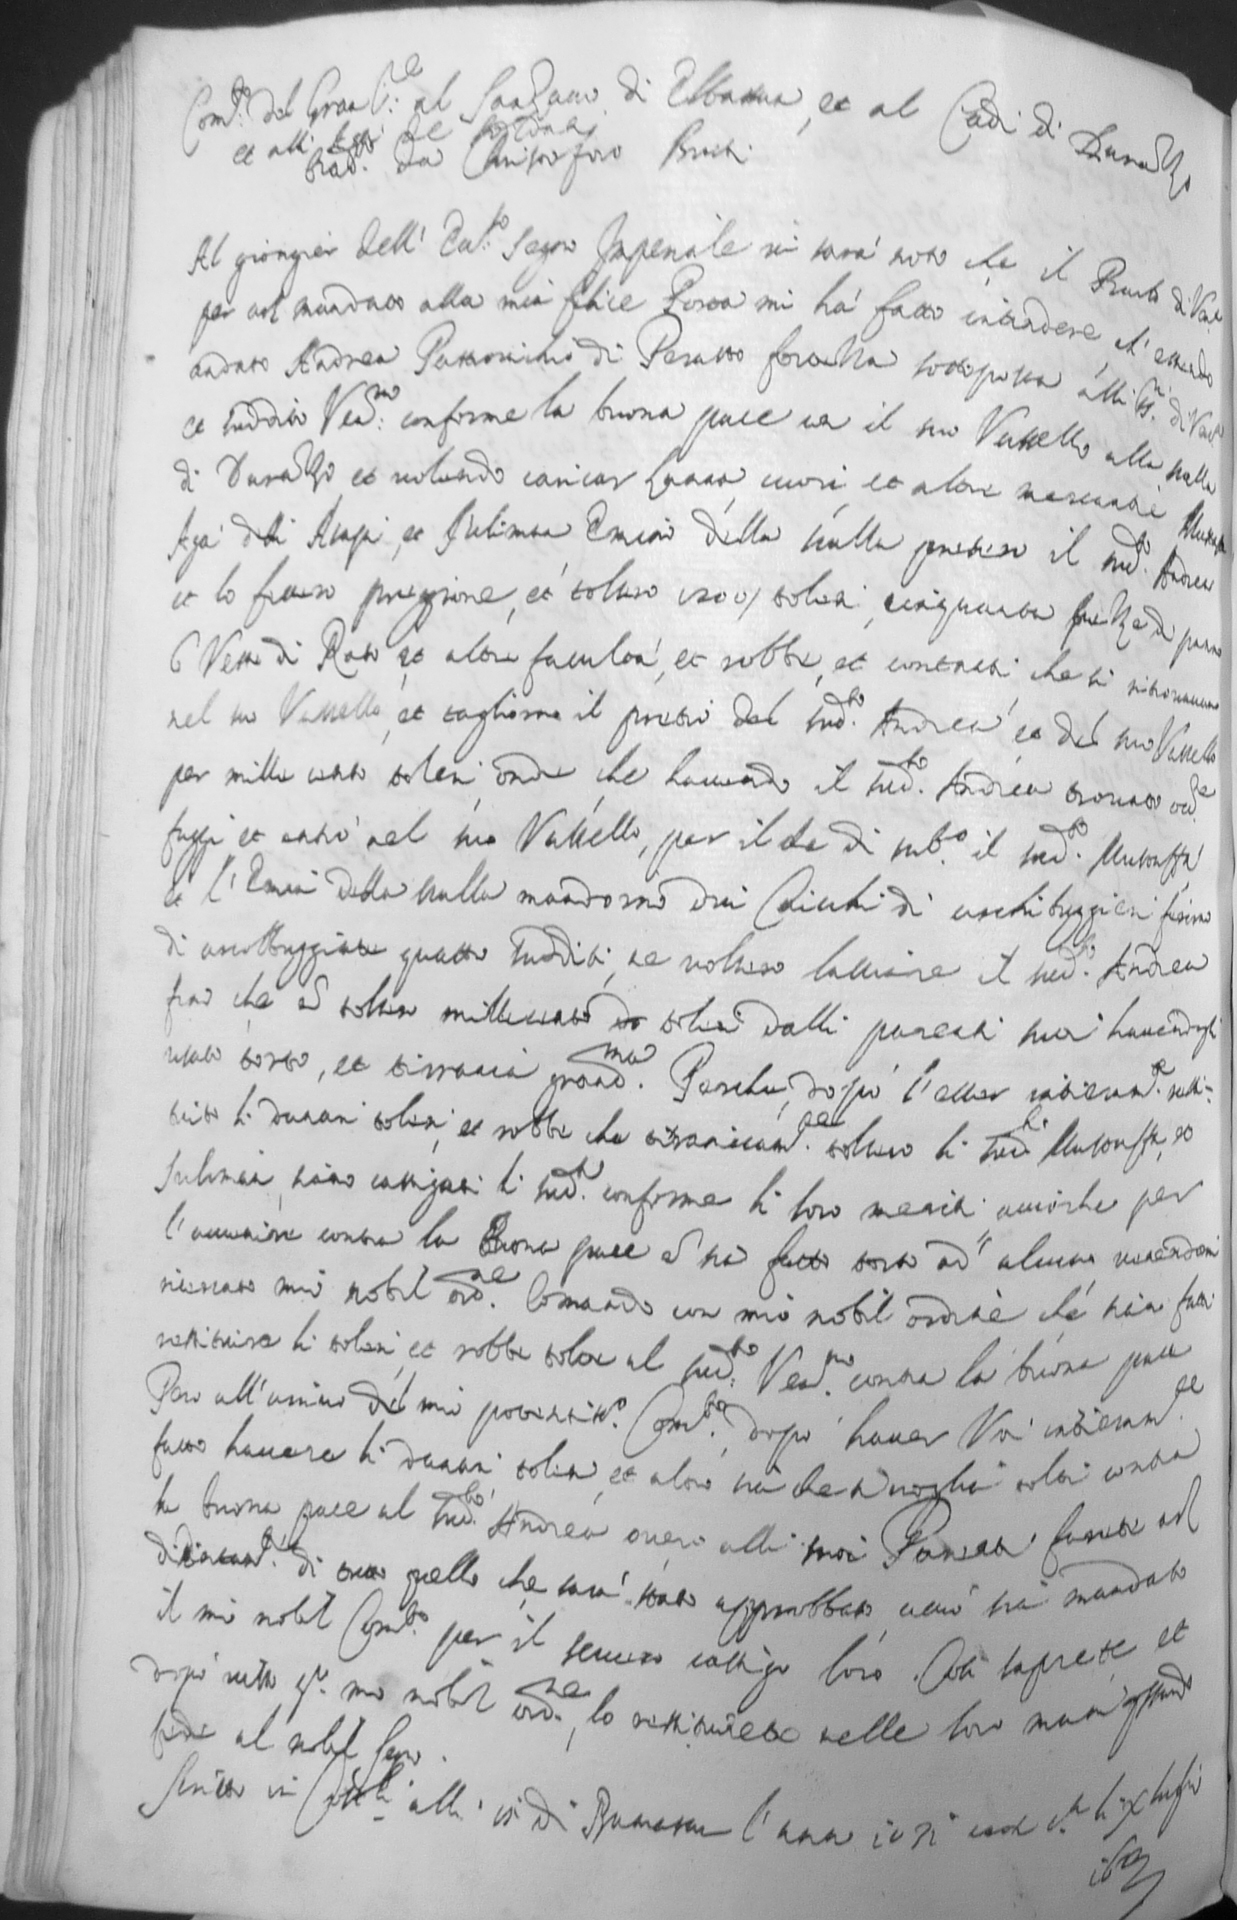 Com.to del Gran S.re al Sanzacco di Elbassan, et al Cadi di Durazzo
et alli
trad.o da Christoforo Bruti.
Al gionger dell' Ecc.so segno Imperiale vi sarà noto che il Bailo di Ven.a
per arz mandato alla mia felice Porta mi hà fatto intendere ch' essendo
andato Andrea di Perasto fortezza sottoposta alli SS.ri di Ven.a
et suddito Ven.no conforme la buona pace co il suo Vassello alla scalla
di Durazzo et volendo caricar grano, cuori, et altre mercantie Mustaffà
Agà delli Asapi, et Suliman Emin della scalla presero il sud.to Andrea
et lo fecero preggione, et tolsero tolari, cinquanta pezze di panno
6 Veste di Raso, et altre facultà, et robbe, et contanti, che si ritrovavano
nel suo Vassello, et tagliorno il pretio del sud.to Andrea et del suo Vassello
per mille cento tolari onde che havendo il sud.to Andrea trovato
fuggì et entrò nel suo Vassello, per il che di sub.o il sud.to Mustaffà
et l' Emin della scalla mandorno doi Caicchi di archibuggieri fecero
di archibuggiate quatro sudditi, ne volsero lassiare il sud.to Andrea
fino che nõ tolsero millecento tolari dalli parenti suoi havendogli
usato torto, et tirrania grand.ma. Perché, dopò l' esser intieram.te resti-
tuito li danari tolari, et robbe che tirranicam.te tolsero li sud.ti Mustaffà, et
Suliman, siano castigati li sud.ti conforme li loro meriti, acciòche per
l' avvenire contra la Buona pace nõ sia fatto torto ad alcuno
ricercato mio nobil ord.ne Comando con mio nobil ordine che sian fatti
restituire li tolari, et robbe tolte al sud.to Ven.no contra la buona pace
Però all' arrivo del mio potentiss.o Com.to, dopò haver Voi intieram.te
fatto havere li danari tolari, et altro sia che si voglia tolti contra
la buona pace al sud.to Andrea overo alli suoi Parenti farete arz
di tutto quello che sarà stato approbbato, acciò sia mandato
il mio nobil Com.to per il severo castigo loro. Così saprete et
dopò visto q.to mio nobil ord.ne, lo restituirete nelle loro mani prestando
fede al nobil segno.
Scritto in Const.li alli di Ramazan l' anno